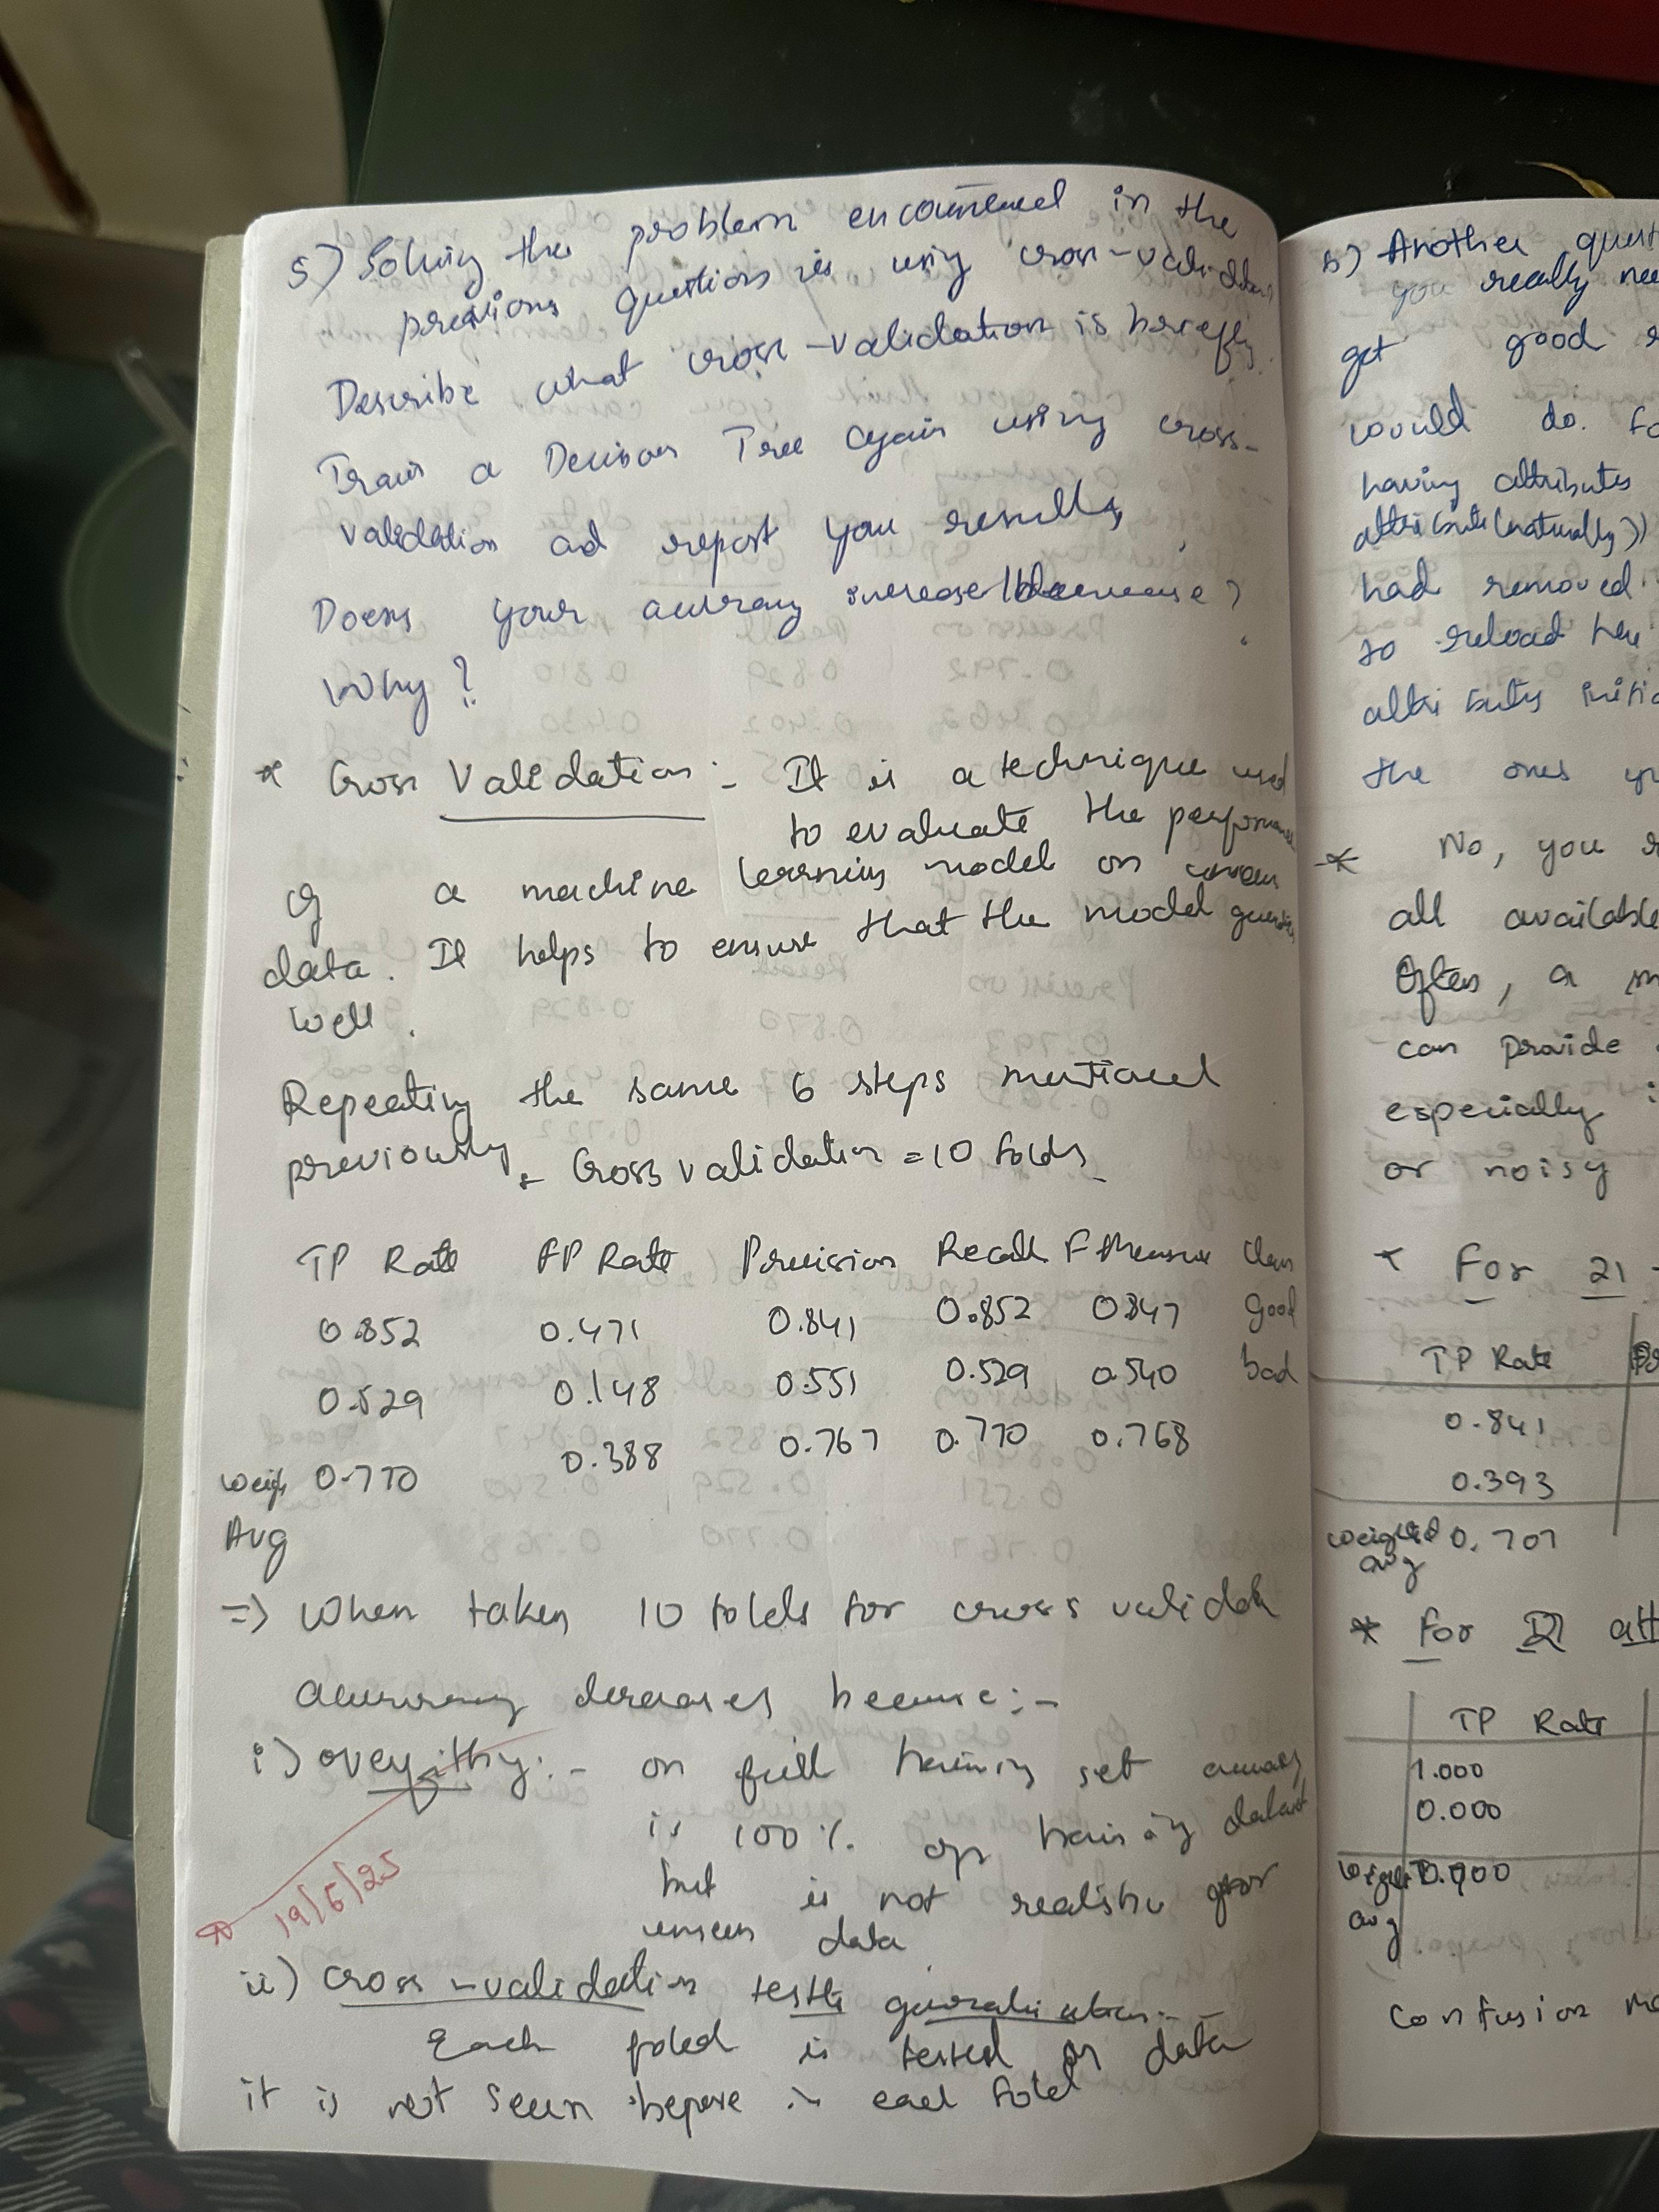 5) Solving the problem encountered in the
previous questions is using cross-validation
Describe what cross-validation is briefly.
Train a Decision Tree again using cross-
validation and report your results,
Does your accuracy increase/decrease?
Why?
* Cross Validation :- It is a technique used
to evaluate the performance
of a machine learning model on unseen
data. It helps to ensure that the model
well.
Repeating the same 6 steps mentioned
previously. Cross validation = 10 folds
TP Rate FP Rate Precision Recall F Measure Class
0.852 0.471 0.841 0.852 0.847 good
0.529 0.148 0.551 0.529 0.540 bad
Weigh 0.770 0.388 0.767 0.770 0.768
Avg
=> When taken 10 folds for cross validatn
accuracy decreases because :-
i) overfitting :- on full training set accuracy
is 100% of training dataset
but is not realistic for
unseen data
19/6/25
ii) cross-validation tests generalisation :-
Each fold is tested on data
it is not seen before in each fold
b) Another quest
you really nee
get good
would do. fo
having attributes
attribute (naturally))
had removed
so reload here
attributes initia
the ones yo
* No, you
all available
Often, a
can provide
especially
or noisy
* For 21
TP Rate
0.841
0.393
Weighted 0.707
avg
* For att
TP Rate
1.000
0.000
avg
Confusion